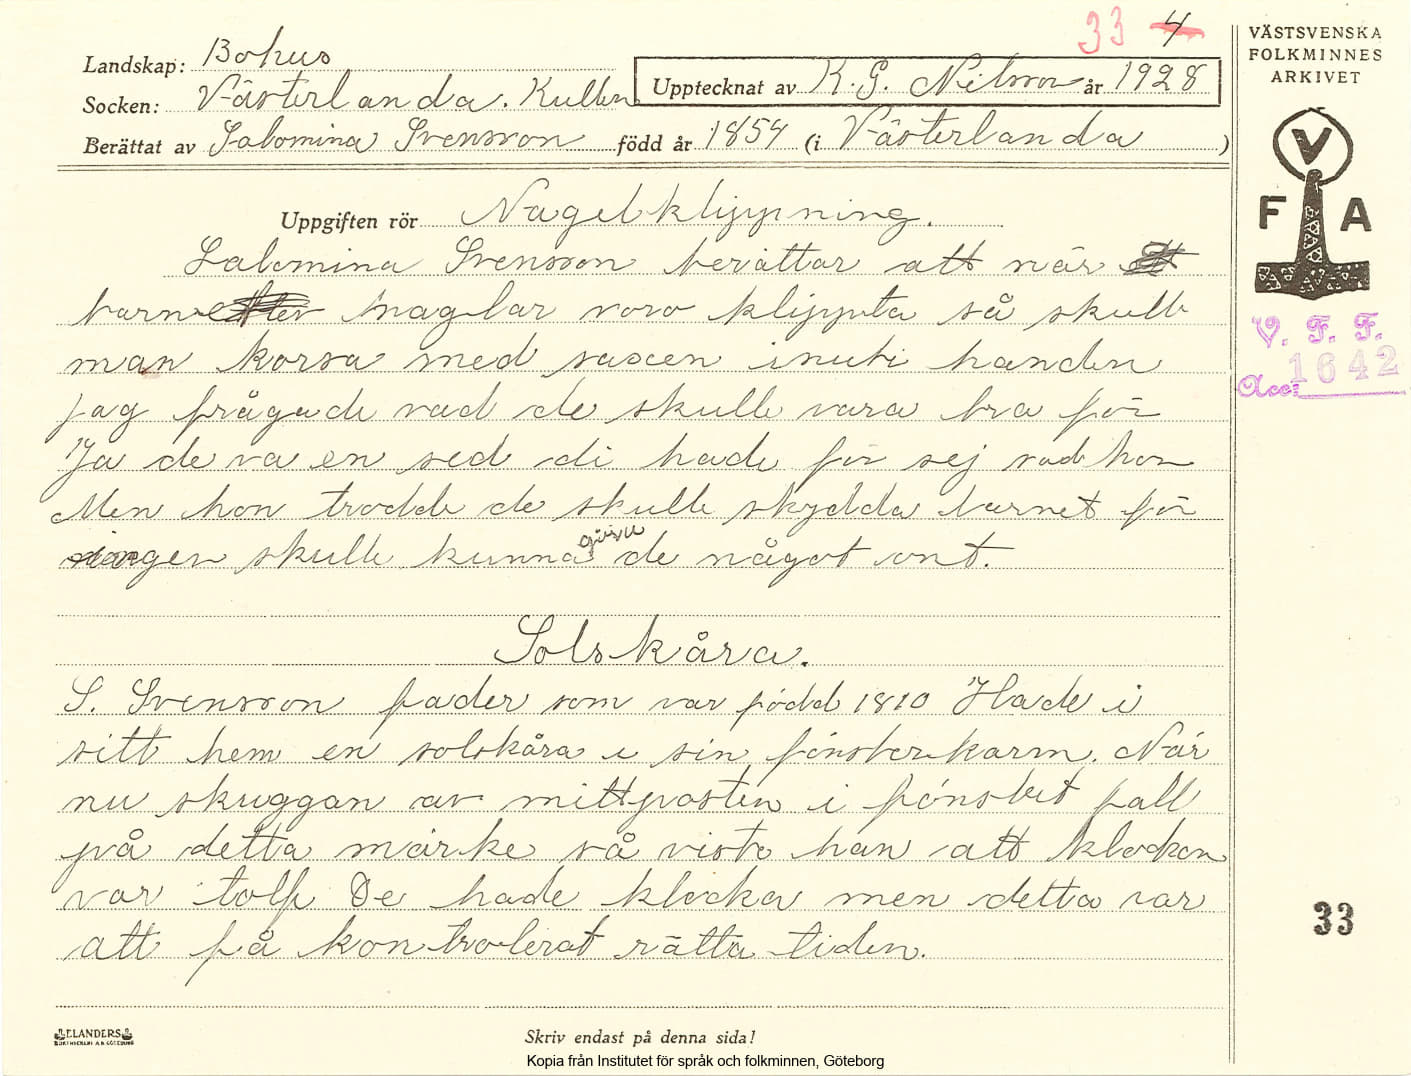 33 4
VÄSTSVENSKA
FOLKMINNES
ARKIVET
Landskap: Bohus
Upptecknat av K. G. Nilsson år 1928
Socken: Västerlanda. Kullen
Berättat av Salomina Svensson född år 1854 (i Västerlanda )
V
F A
V. F. F.
Acc: 1642
Uppgiften rör Nagelklippning.
Salomina Svensson berättar att när
barn naglar voro klippta så skulle
man korsa med saxen inuti handen
jag frågade vad de skulle vara bra för
Ja de va en sed di hade för sej sade hon
Men hon trodde de skulle skydda barnet för
ingen skulle kunna göra de något ont.
Solskåra.
S. Svensson fader som var född 1810 Hade i
sitt hem en solskåra i sin fönsterkarm. När
nu skuggan av mittposten i fönstret fall
på detta märke så viste han att klockan
var tolf De hade klocka men detta var
att få kontrolerat rätta tiden.
33
ELANDERS
BOKTRYCKERI A.B. GÖTEBORG
Skriv endast på denna sida!
Kopia från Institutet för språk och folkminnen, Göteborg